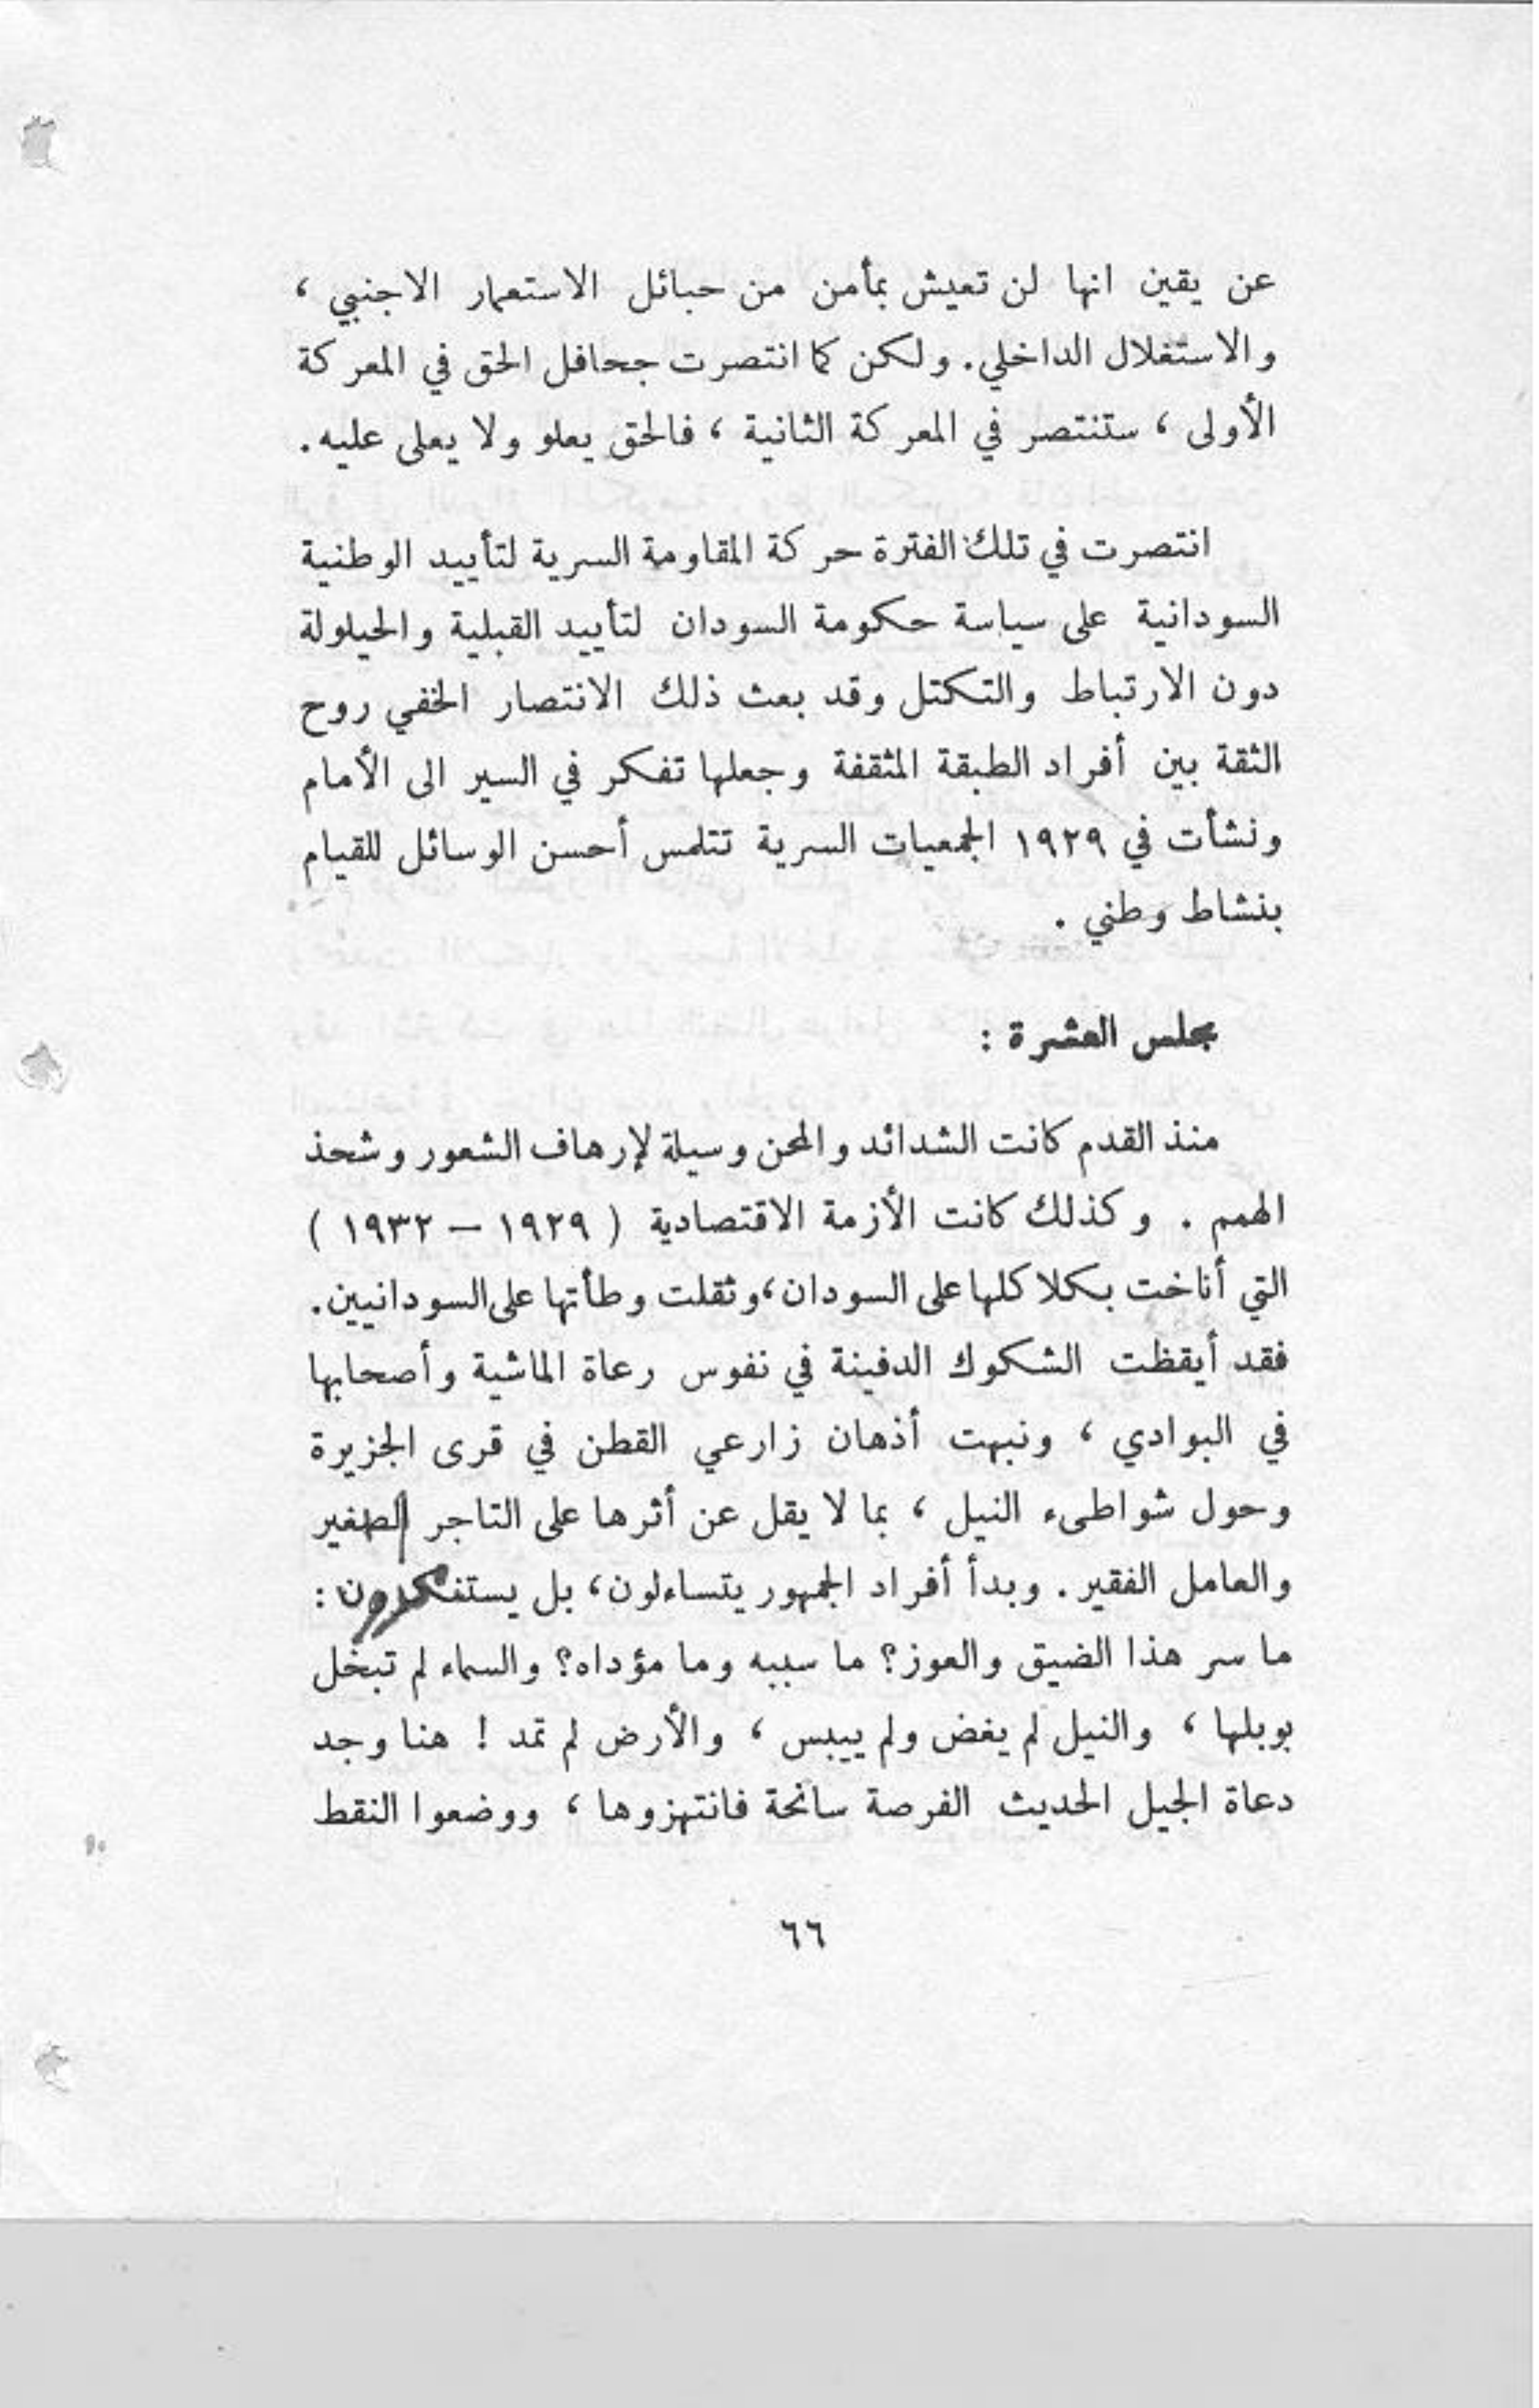 عن يقين انها لن تعيش بمأمن من حبائل الاستعمار الاجنبي ،
والاستغلال الداخلي. ولكن كما انتصرت جحافل الحق في المعركة
الأولى ، ستنتصر في المعركة الثانية ، فالحق يعلو ولا يعلى عليه.
انتصرت في تلك الفترة حركة المقاومة السرية لتأييد الوطنية
السودانية على سياسة حكومة السودان لتأييد القبلية والحيلولة
دون الارتباط والتكتل وقد بعث ذلك الانتصار الخفي روح
الثقة بين أفراد الطبقة المثقفة وجعلها تفكر في السير الى الأمام
ونشأت في ١٩٢٩ الجمعيات السرية تتلمس أحسن الوسائل للقيام
بنشاط وطني .
مجلس العشرة :
منذ القدم كانت الشدائد والمحن وسيلة لإرهاف الشعور وشحذ
الهمم . وكذلك كانت الأزمة الاقتصادية ( ١٩٢٩ – ١٩٣٢ )
التي أناخت بكلاكلها على السودان ، وثقلت وطأتها على السودانيين.
فقد أيقظت الشكوك الدفينة في نفوس رعاة الماشية وأصحابها
في البوادي ، ونبهت أذهان زارعي القطن في قرى الجزيرة
وحول شواطىء النيل ، بما لا يقل عن أثرها على التاجر الصغير
والعامل الفقير. وبدأ أفراد الجمهور يتساءلون، بل يستنكرون :
ما سر هذا الضيق والعوز؟ ما سببه وما مؤداه؟ والسماء لم تبخل
بوبلها ، والنيل لم يغض ولم ييبس ، والأرض لم تمد ! هنا وجد
دعاة الجيل الحديث الفرصة سانحة فانتهزوها ، ووضعوا النقط
٦٦